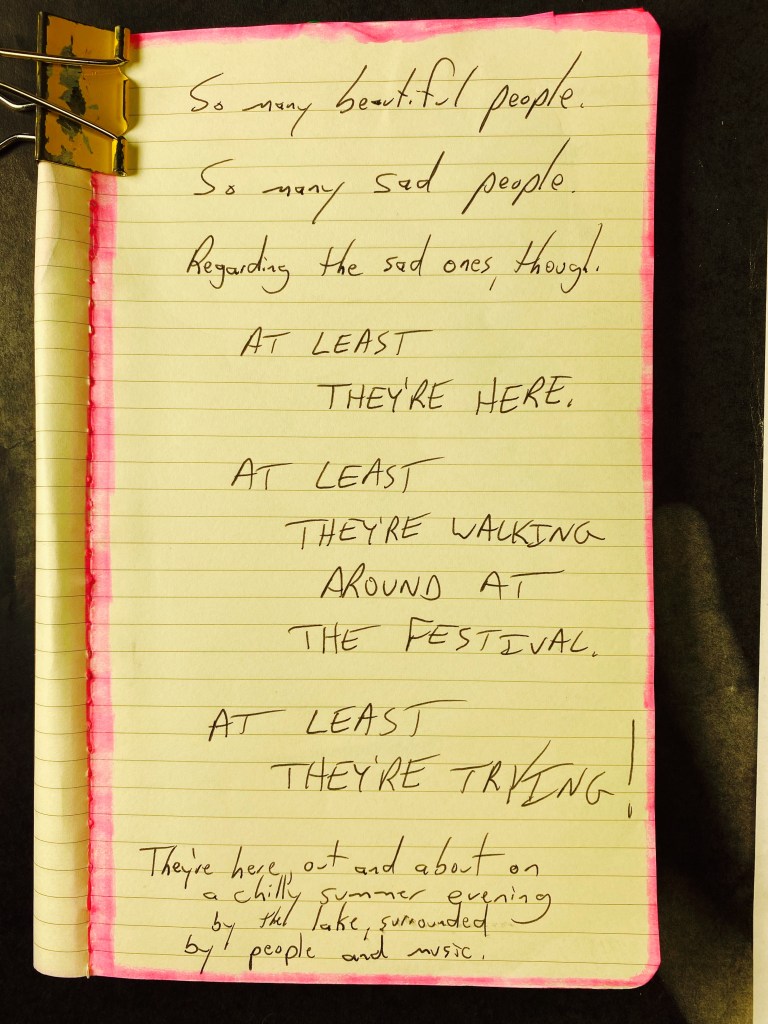 So many beautiful people.
So many sad people.
Regarding the sad ones, though.
AT LEAST
THEY'RE HERE.
AT LEAST
THEY'RE WALKING
AROUND AT
THE FESTIVAL.
AT LEAST
THEY'RE TRYING!
They're here, out and about on
a chilly summer evening
by the lake, surrounded
by people and music.